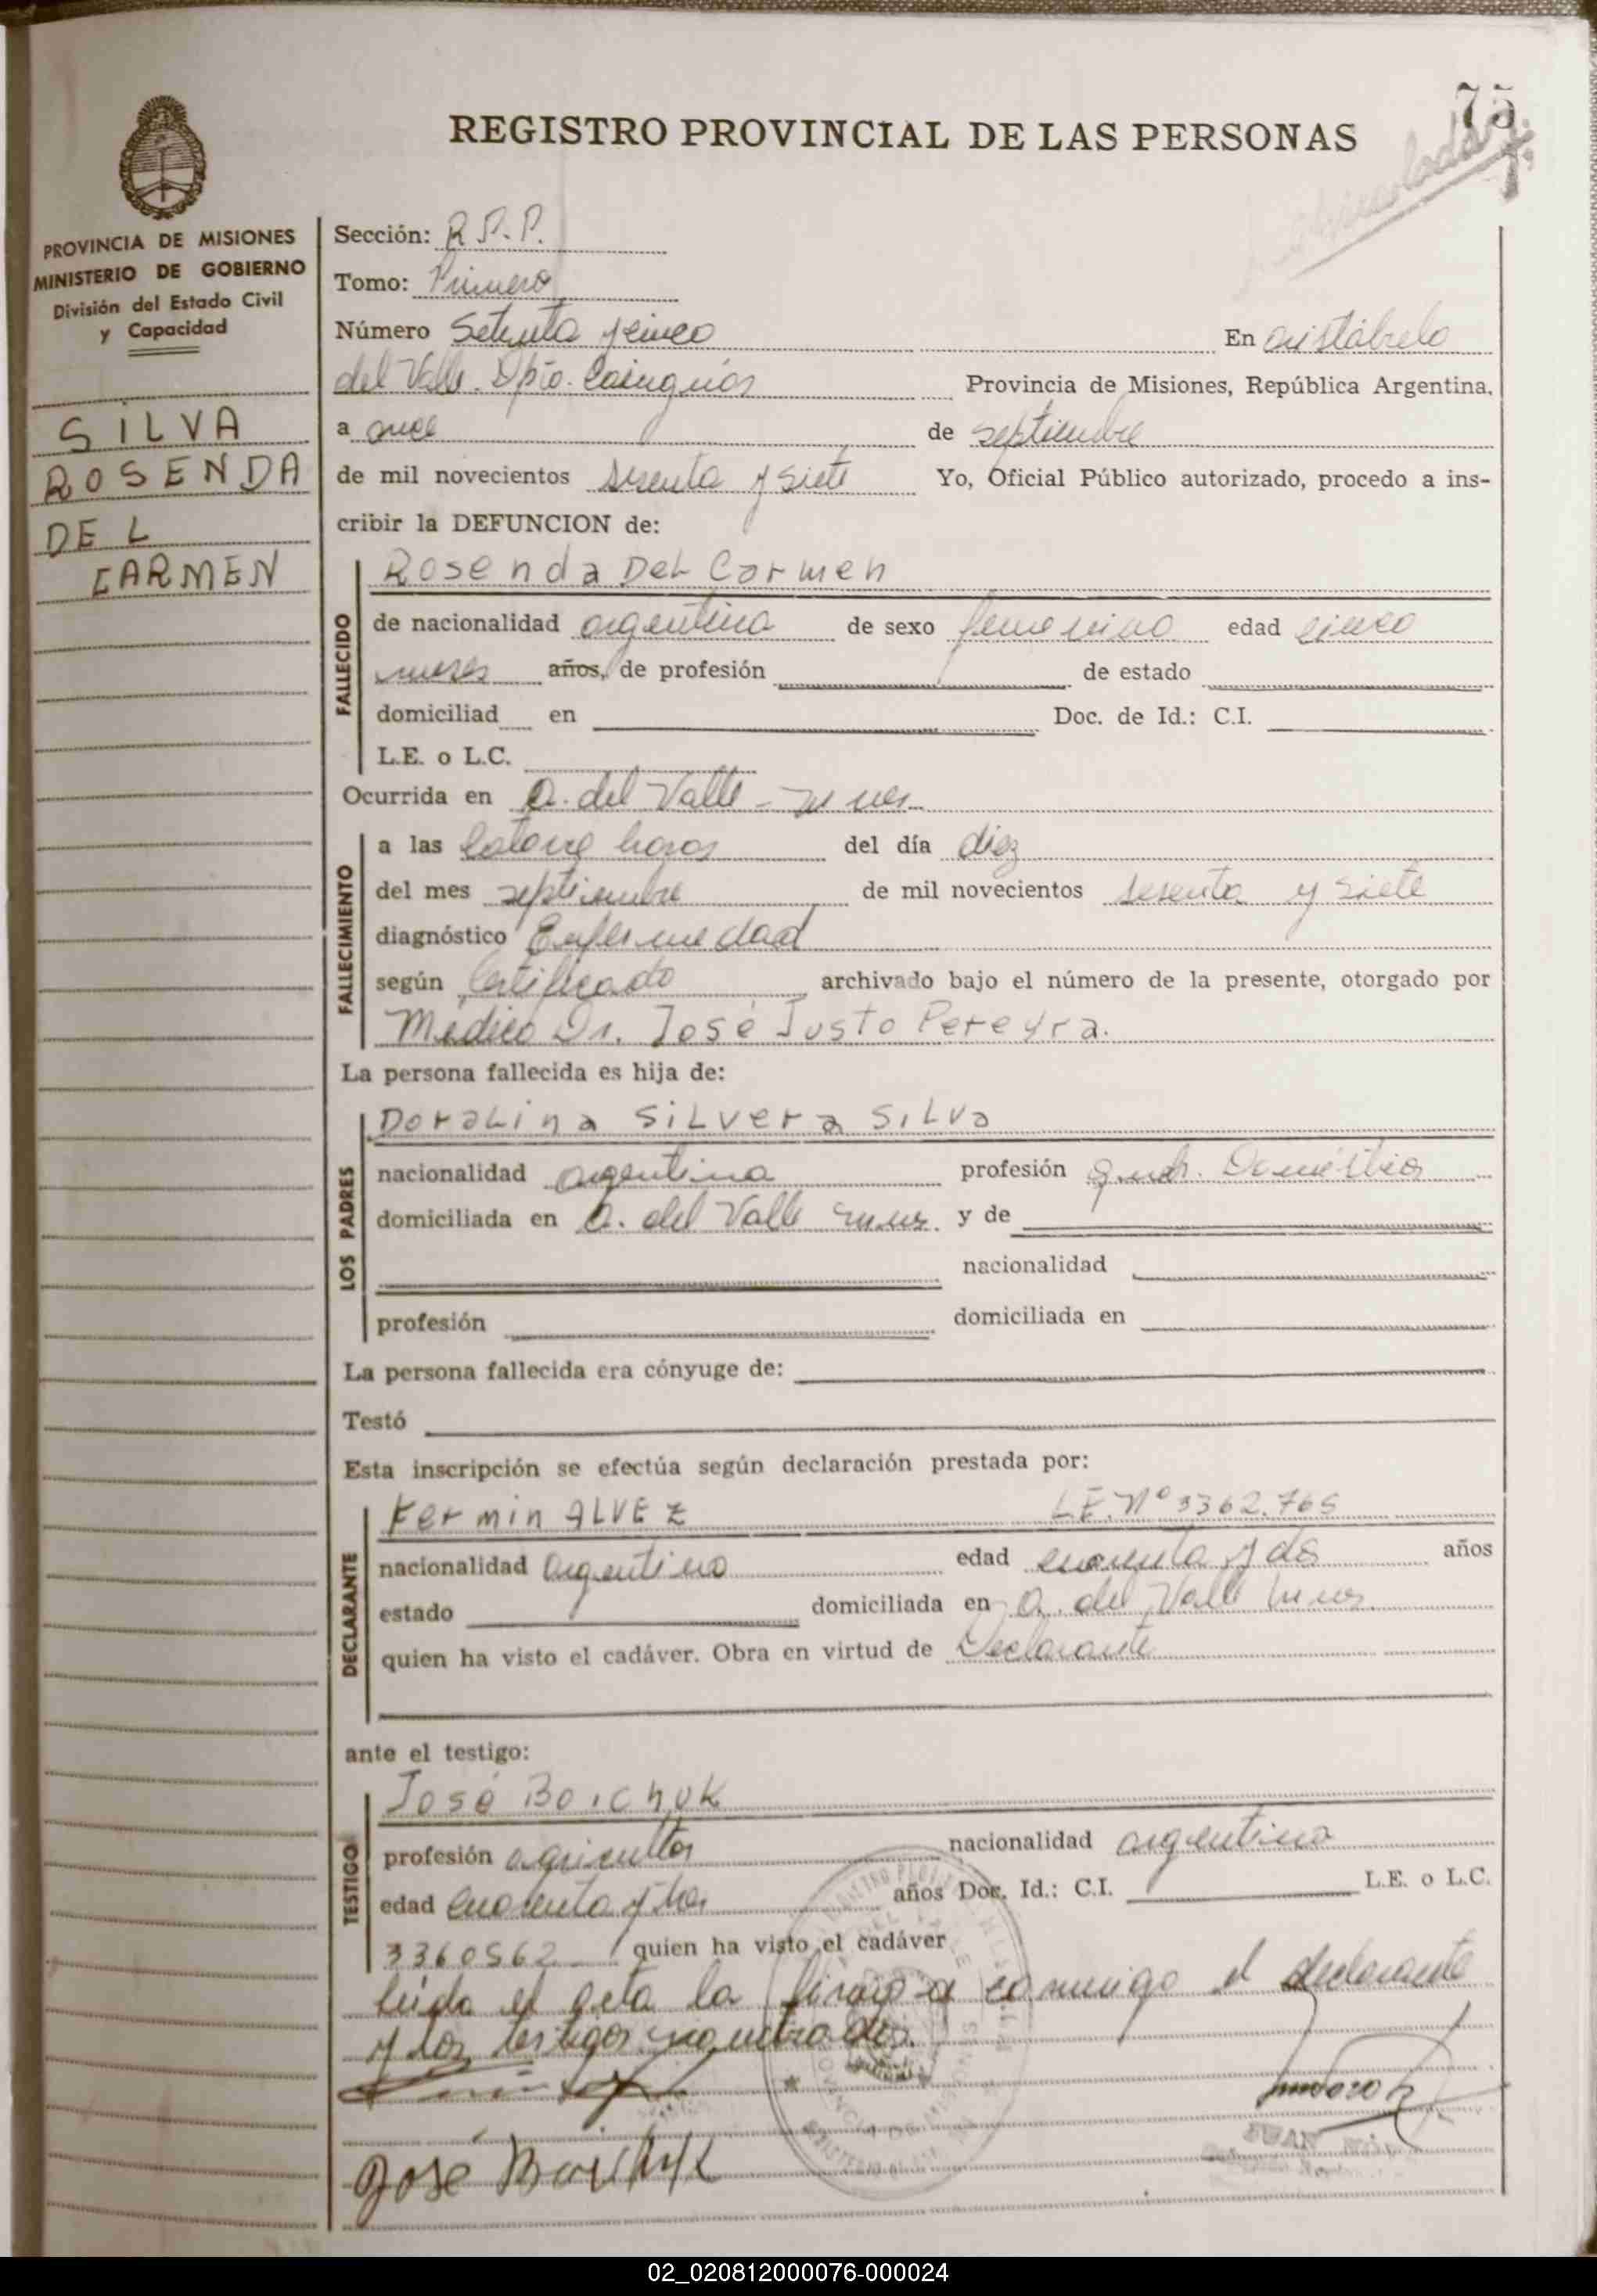 75
REGISTRO PROVINCIAL DE LAS PERSONAS
PROVINCIA DE MISIONES
MINISTERIO DE GOBIERNO
División del Estado Civil
y Capacidad
SILVA
ROSENDA
DEL
CARMEN
Sección: R.P.P.
Tomo: Primero
Número Setenta y cinco En Aristóbulo
del Valle. Dpto. Cainguás Provincia de Misiones, República Argentina,
a once de septiembre
de mil novecientos sesenta y siete Yo, Oficial Público autorizado, procedo a ins-
cribir la DEFUNCION de:
FALLECIDO
Rosenda Del Carmen
de nacionalidad argentina de sexo femenino edad cinco
meses años, de profesión de estado
domiciliad en Doc. de Id.: C.I.
L.E. o L.C.
Ocurrida en A. del Valle
FALLECIMIENTO
a las catorce horas del día diez
del mes septiembre de mil novecientos sesenta y siete
diagnóstico Enfermedad
según Certificado archivado bajo el número de la presente, otorgado por
Médico Dr. José Justo Pereyra.
La persona fallecida es hija de:
LOS PADRES
DoraLina SiLvera SiLva
nacionalidad argentina profesión
domiciliada en A. del Valle y de
nacionalidad
profesión domiciliada en
La persona fallecida era cónyuge de:
Testó
Esta inscripción se efectúa según declaración prestada por:
DECLARANTE
Fermin ALVEZ L.E. Nº 3362.765
nacionalidad argentino edad y dos años
estado domiciliada en A. del Valle
quien ha visto el cadáver. Obra en virtud de Declarante
ante el testigo:
TESTIGO
José Boichuk
profesión agricultor nacionalidad argentino
edad cuarenta y tres años Doc. Id.: C.I. L.E. o L.C.
3360562 quien ha visto el cadáver
leída el acta la firma conmigo el declarante
y los testigos nombrados.
José Boichuk
JUAN
02_020812000076-000024